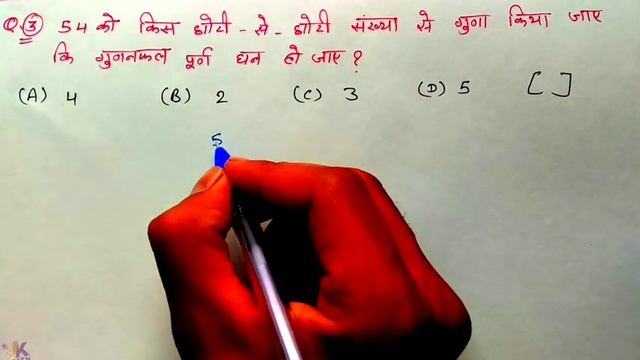 Q.③ 54 को किस छोटी-से-छोटी संख्या से गुणा किया जाए
कि गुणनफल पूर्ण घन हो जाए?
(A) 4 (B) 2 (C) 3 (D) 5 [ ]
5